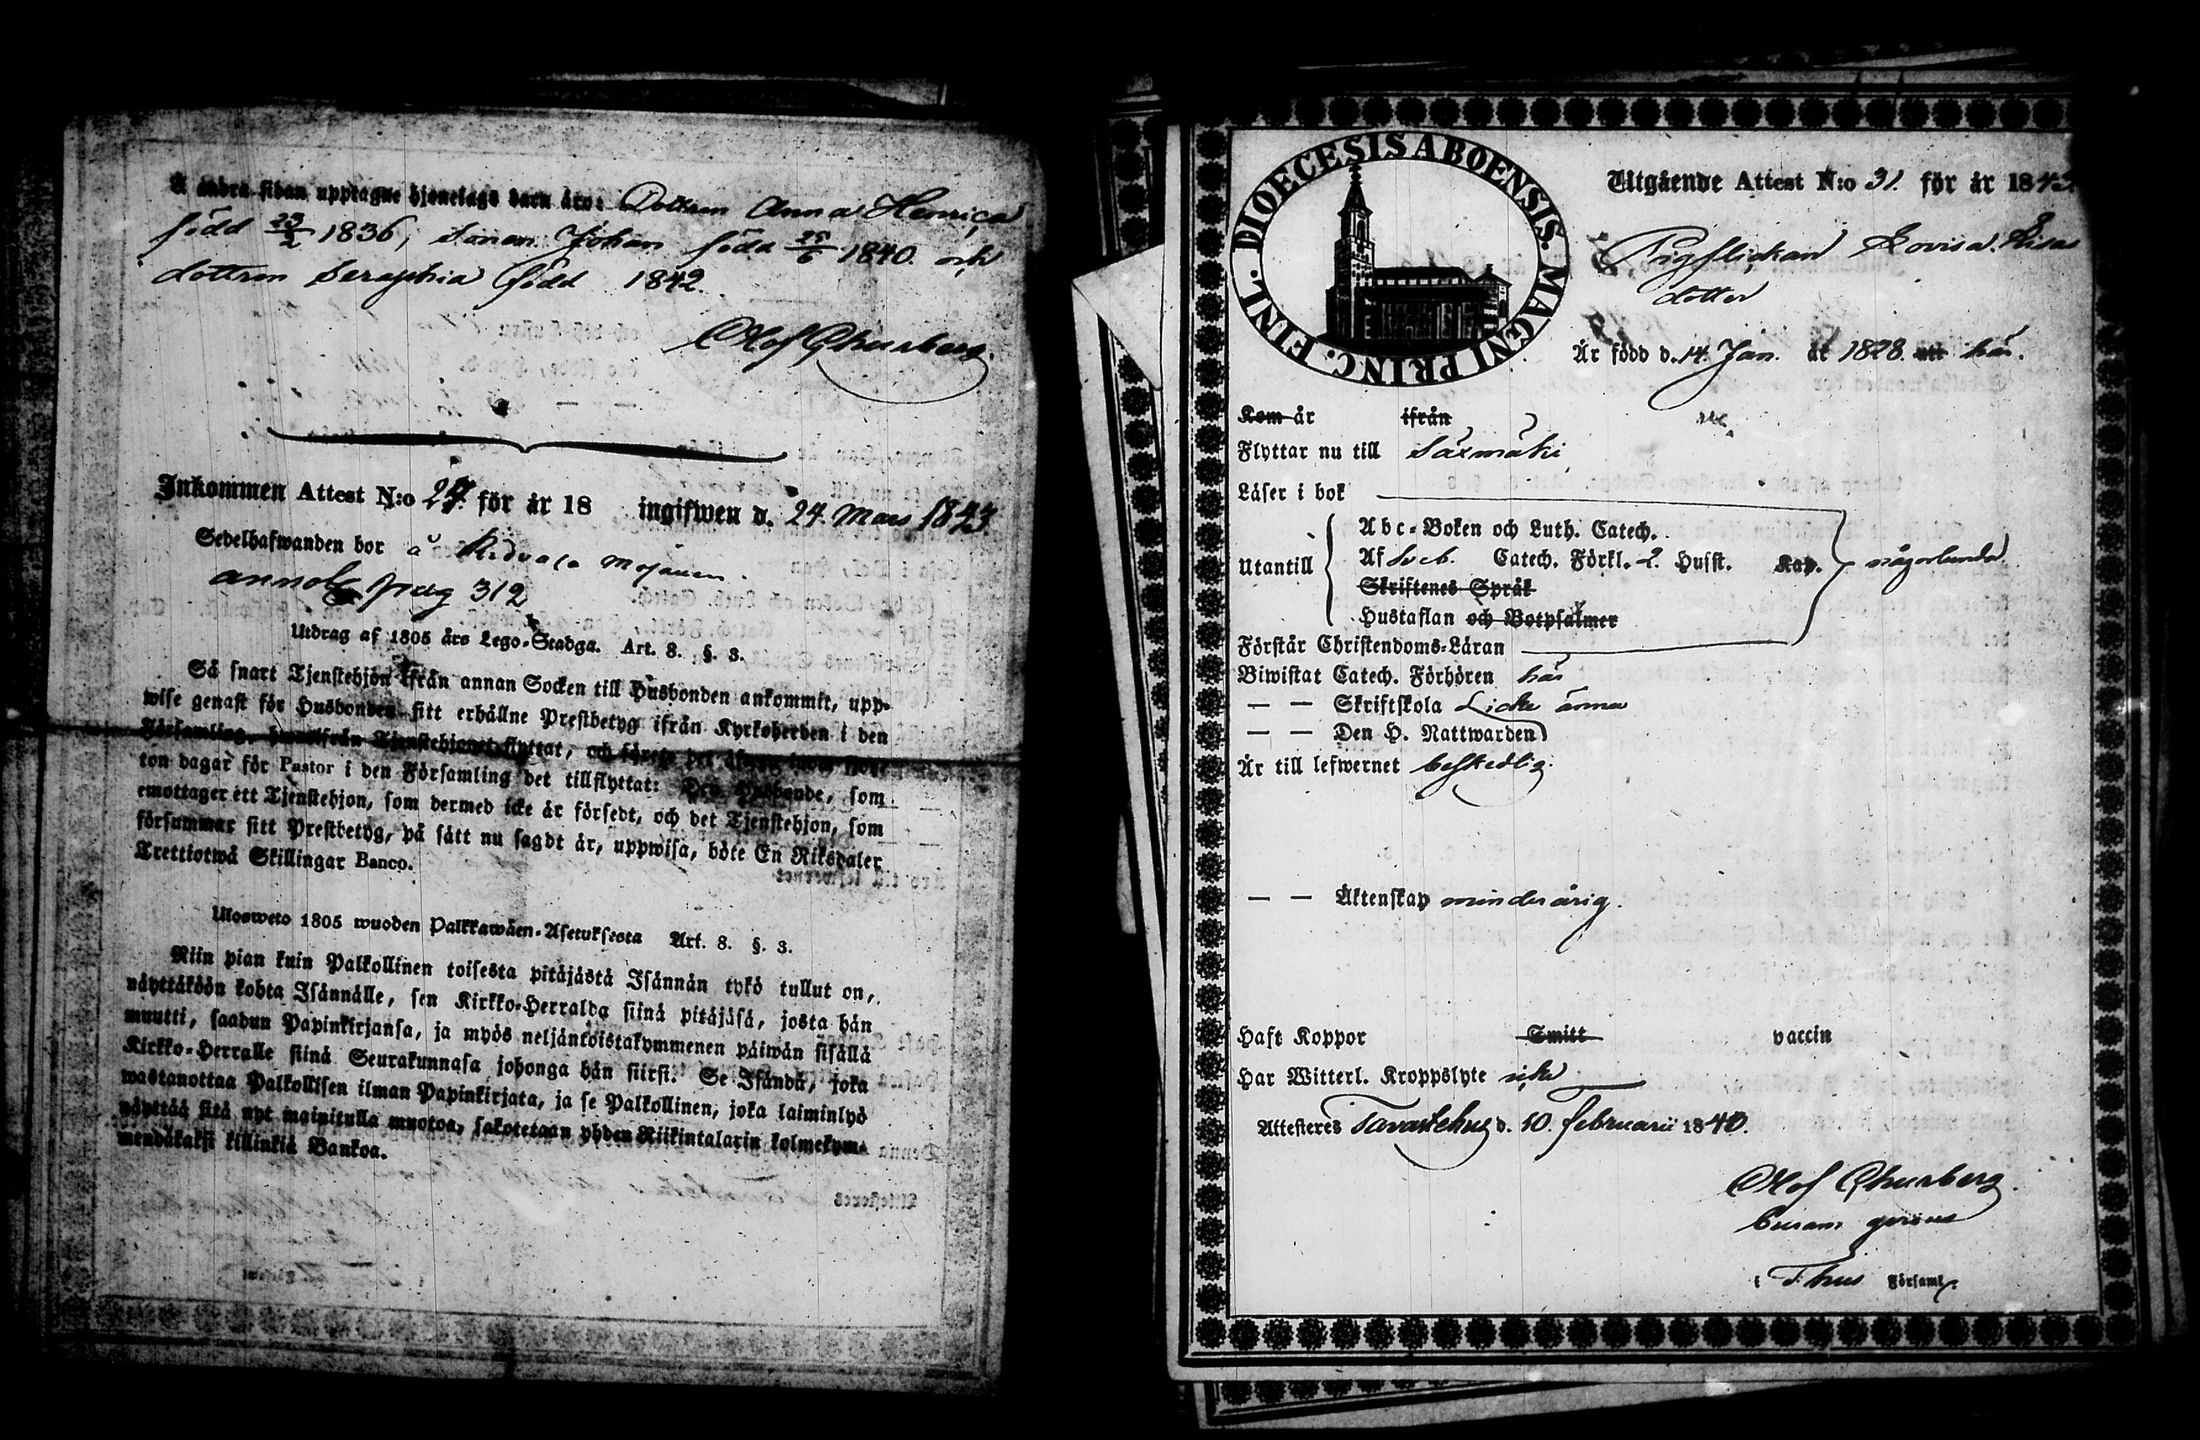 Å andra sidan upptagne hjonelags barn äro: Dottren Anna Henrica
född 23/2 1836, sonen Johan född 25/6 1840. och
dottren Seraphia född 1842.
Olof Churberg.
Inkommen Attest N:o 27. för år 18 ingifwen d. 24. Mars 1843.
Sedelhafwanden bor å
pag 312
Utdrag af 1805 års Lego-Stadga. Art. 8. §. 3.
Så snart Tjenstehjon ifrån annan Socken till Husbonden ankommit, upp-
wise genast för Husbonden sitt erhållne Prestbetyg ifrån Kyrkoherden i den
Församling, hwarifrån Tjenstehjonet flyttat, och
ton dagar för Pastor i den Församling det tillflyttat: Den Husbonde, som
emottager ett Tjenstehjon, som dermed icke är försedt, och det Tjenstehjon, som
försummar sitt Prestbetyg, på sätt nu sagdt är, uppwisa, böte En Riksdaler
Trettiotwå Skillingar Banco.
Ulosweto 1805 wuoden Palkkawäen-Asetuksesta Art. 8. §. 3.
Niin pian kuin Palkollinen toisesta pitäjästä Isännän tykö tullut on,
näyttäköön kohta Isännälle, sen Kirkko-Herralda siinä pitäjäsä, josta hän
muutti, saadun Papinkirjansa, ja myös neljäntöistakymmenen päiwän sisällä
Kirkko-Herralle siinä Seurakunnasa johonga hän siirsi. Se Isändä, joka
wastanottaa Palkollisen ilman Papinkirjata, ja se Palkollinen, joka laiminlyö
näyttää sitä nyt mainitulla muotoa, sakotetaan yhden Riikintalarin kolmekym-
mendäkaksi killinkiä Bankoa.
DIOECESIS ABOENSIS. MAGNI PRINC. FINL.
Utgående Attest N:o 31. för år 1843.
Pigflickan Lovisa Lisas
dotter
Är född d. 14. Jan. år 1828. att här.
Kom år ifrån
Flyttar nu till Säxmäki
Läser i bok
Abc-Boken och Luth. Catech.
Utantill Af Sveb. Catech. Förkl. 2. Husst. Kap. någorlunda
Skriftenes Språk
Hustaflan och Botpsalmer
Förstår Christendoms-Läran
Biwistat Catech. Förhören här
— — Skriftskola Icke ännu
— — Den H. Nattwarden
Är till lefwernet beskedlig.
— — Äktenskap minderårig.
Haft Koppor Smitt vaccin
Har Witterl. Kroppslyte icke
Attesteres Tavastehus d. 10. Februarii 1843.
Olof Churberg.
Curam gerens
i T:hus Församl.